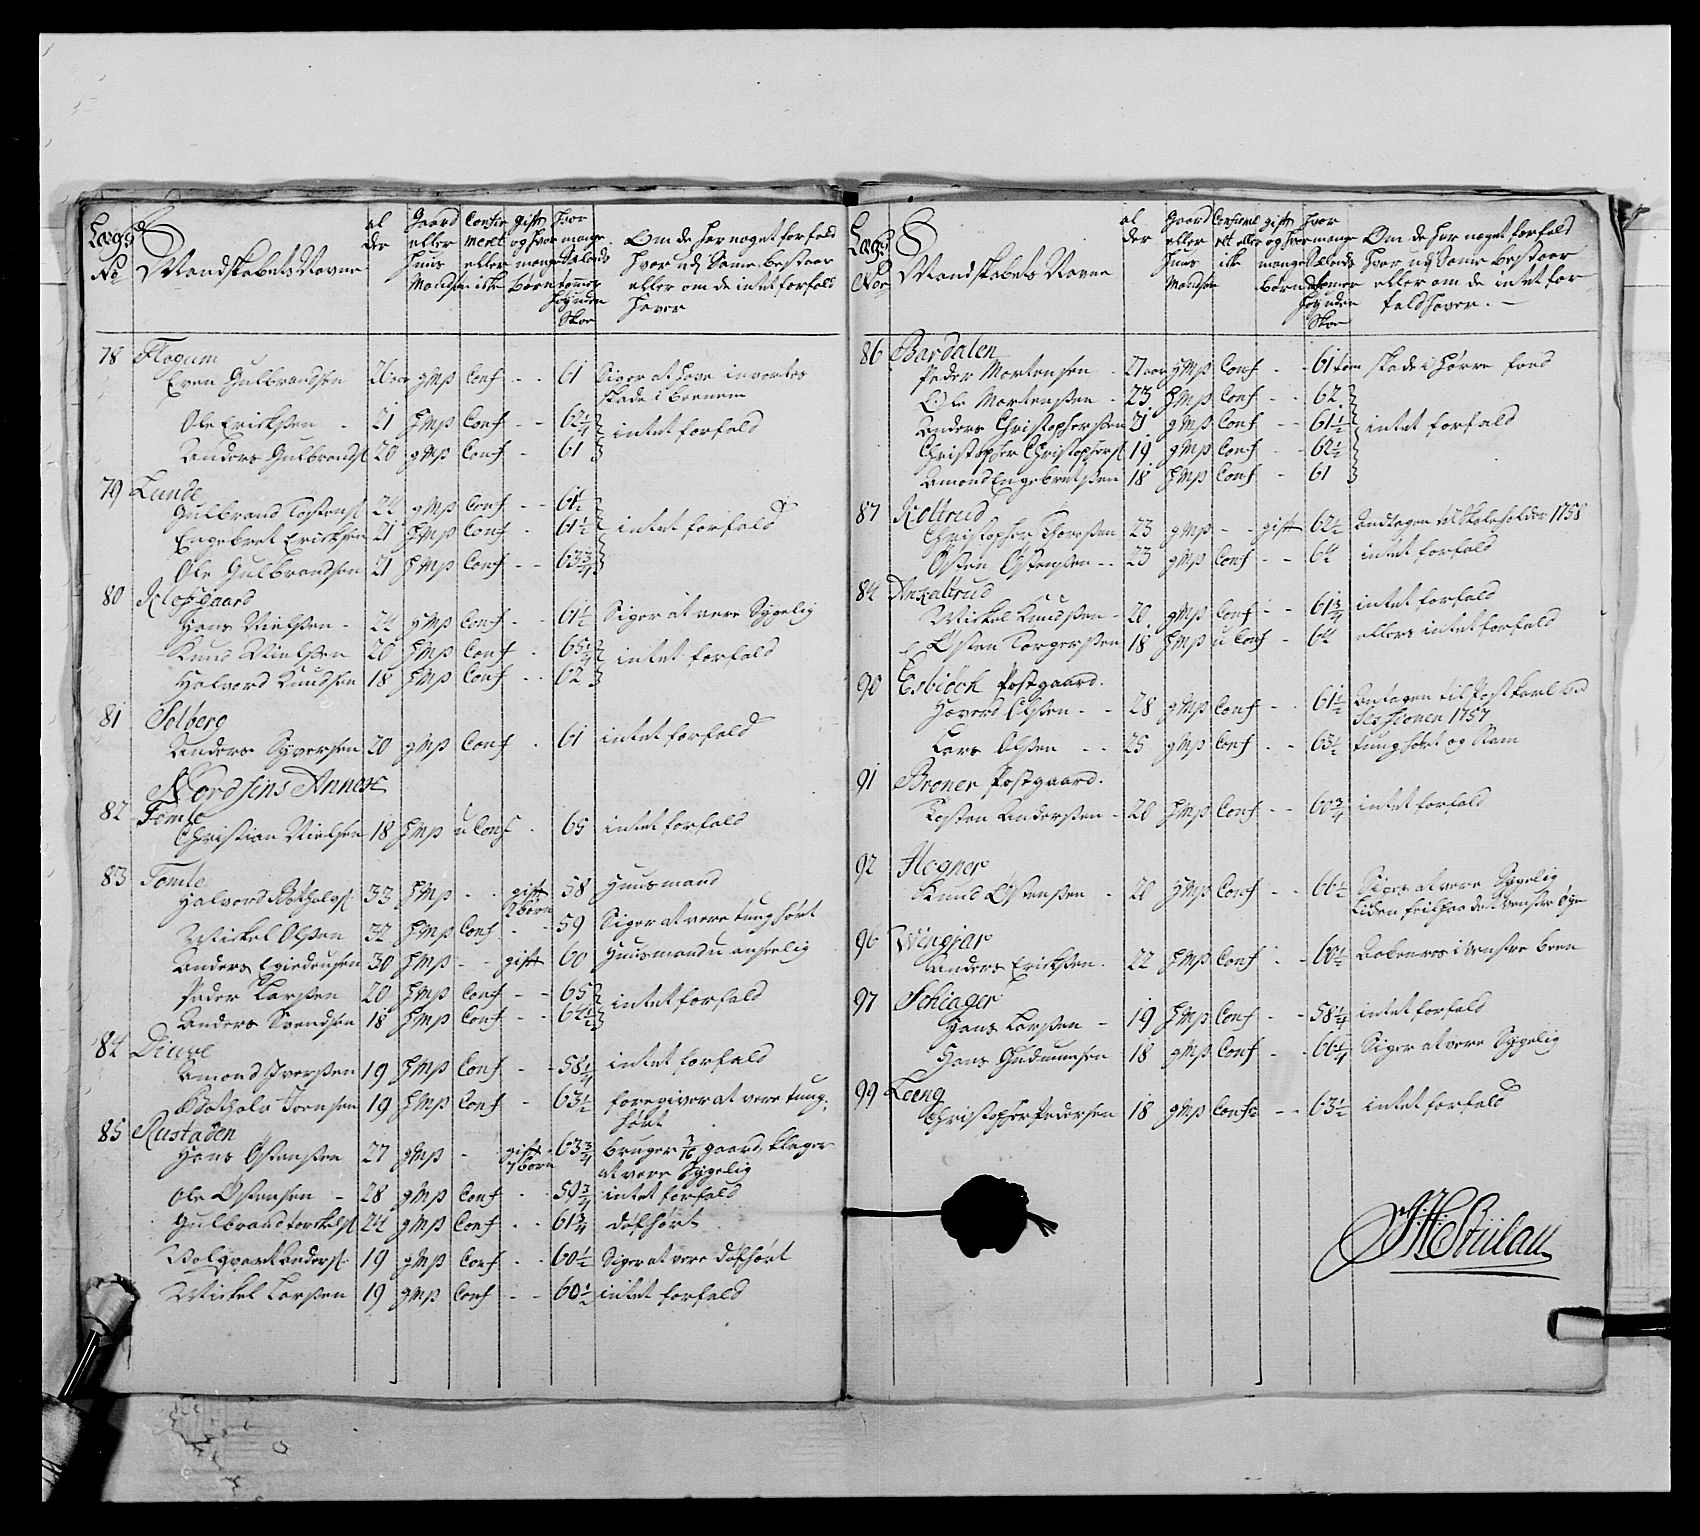 Lægs No
Mandskabets Navne
al der
Gaard eller Huus Mands
Confirmeret eller iske
gift og hvor mange Børn
hvor mange Siælands tommer høy uden Skoe
Om de har noget forfald
hvor udj Same bestaar
eller om de intet forfald
haver
78 Flogum
Even Gulbrandsen 26 aar gMs Conf - - 61 Siger at have invortes
skade i beenene
Ole Ericksen - 21 HMs Conf - - 62 1/4 intet forfald
Anders Gulbrands 20 gMs Conf - 61
79 Lunde
Gulbrand Tostens 24 gMs Conf - - 61 1/2
Engebret Ericksen 21 HMs Conf - 61 1/2 intet forfald
Ole Gulbrandsen 21 HMs Conf - - 63 3/4
80 Klofgaard
Hans Nielsen - 24 gMs Conf - - 61 1/2 Siger at være Sygelig
Knud Nielsen 20 HMs Conf - 65 1/4 intet forfald
Halvord Knudsen 18 HMs Conf - - 62
81 Solberg
Anders Syversen 20 gMs Conf - 61 intet forfald
Nordsins Annex
82 Tomle
Christian Nielsen 18 HMs u Conf - 65 intet forfald
83 Tomle
Halvord Botholvs 33 HMs - - gift 2 børn 58 Huusmand
Mickel Olsen 32 HMs Conf - - 59 Siger at være tunghørt
Anders Engiedensen 30 HMs - - gift 60 Huusmand u anseelig
Peder Larsen 20 HMs Conf - - 65 intet forfald
Anders Svendsen 18 HMs Conf - - 64 1/2
84 Diuve
Amond Iversen 19 HMs Conf - - 58 1/4 intet forfald
Botholv Joensen 19 HMs Conf - 63 1/2 foregiver at være tung-
hørt
85 Rustaden
Hans Østensen 27 gMs - gift 1 børn 63 3/4 bruger gaard, klager
at være Sygelig
Ole Østensen - 28 gMs Conf - - 59 3/4 intet forfald
Gulbrand torckels 24 gMs Conf - - 61 3/4 døfhørt
Anders 19 gMs Conf - - 60 1/2 Siger at være døfhørt
Mickel Larsen 19 gMs Conf - - 60 1/2 intet forfald
Lægs Noe
Mandskabets Navne
al der
Gaard eller Huus Mandsøn
Confirmeret eller iske
gift og hvor mange børn
hvor mange Siælands tomer høy uden Skoe
Om de har noget forfald
hvor udj Same bestaar
eller om de intet for
fald haver. -
86 Bardalen
Peder Mortensen - 27 aar HMs Conf - 61 tom skade i høyre foed
Ole Mortensen - 23 HMs Conf - - 62
Anders Christophersen 21 gMs Conf - - 61 1/2 intet forfald
Christopher Christophers 19 gMs Conf - - 62 1/2
Amond Engebretsen 18 HMs Conf - 61
87 Koltrud
Christopher Thoresen 23 gMs - - gift 62 1/2 Andtagen til Skoleholder 1758
Østen Østensen - - 23 gMs Conf - - 64 intet forfald
84 Ankaltrud
Mickel Knudsen - 20 gMs Conf - - 61 3/4 intet forfald
Østen Torgersen 18 HMs u Conf - 64 ellers intet forfald
90 Esbiöch Postgaard.
Haverd Olsen - - 28 gMs Conf - - 61 1/2 Antagen til Postkarl ved
Sessionen 1757
Lars Olsen - - 25 gMs Conf - - 63 1/2 tunghørt og
91 Broner Postgaard.
Tosten Andersen - 20 HMs Conf - - 60 3/4 intet forfald
92 Hogner
Knud Østensen - 20 HMs Conf - - 66 1/2 Siger at være Sygelig
Liden feil paa det venstre Øye
96 Wingiar
Anders Ericksen - 22 HMs Conf - - 60 1/2 Aabenvis i venstre been
97 Schiager
Hans Larsen - 19 HMs Conf - - 58 1/4 intet forfald
Hans Gudmunsen 18 gMs Conf - - 66 1/4 Siger at være Sygelig
99 Loeng
Christopher Pedersen 18 gMs Conf - - 63 1/2 intet forfald